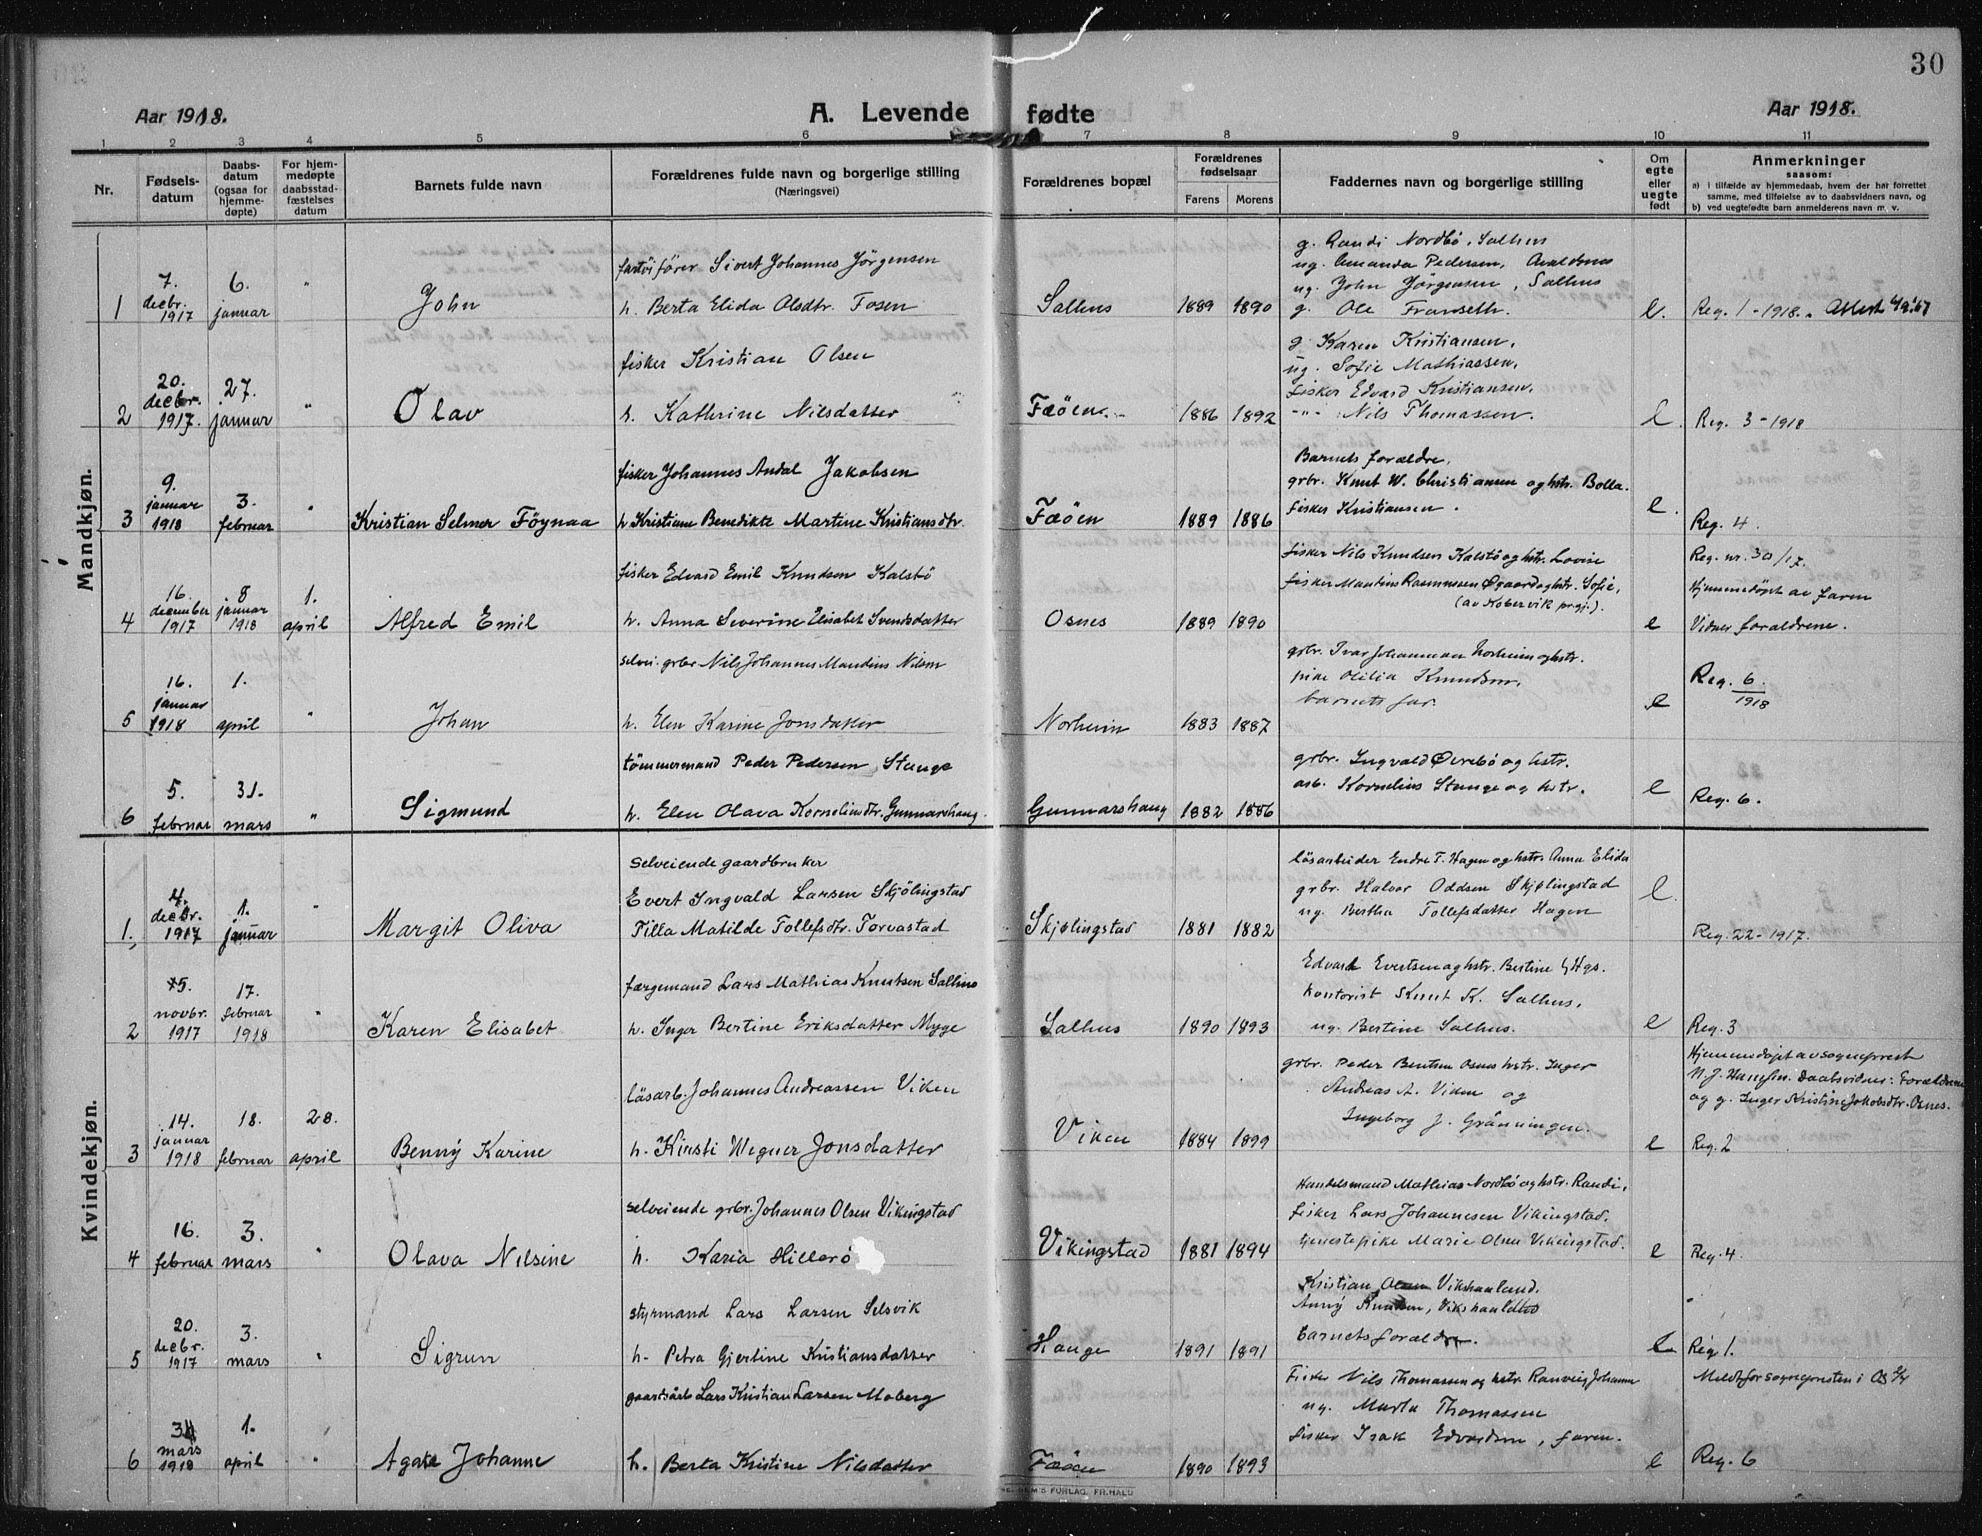 30
Aar 1918.
A. Levende fødte
Aar 1918.
1 2 3 4 5 6 7 8 9 10 11
Nr.
Fødsels-
datum
Daabs-
datum
(ogsaa for
hjemme-
døpte)
For hjem-
medøpte
daabsstad-
fæstelses
datum
Barnets fulde navn
Forældrenes fulde navn og borgerlige stilling
(Næringsvei)
Forældrenes bopæl
Forældrenes
fødselsaar
Farens Morens
Faddernes navn og borgerlige stilling
Om
egte
eller
uegte
født
Anmerkninger
saasom:
a) I tilfælde av hjemmedaab, hvem der har forrettet
samme, med tilføielse av to daabsvidners navn, og
b) ved uegtefødte barn anmelderens navn m. v.
Mandkjøn.
1
7.
decbr.
1917
6.
januar
"
John
fartöifører Sivert Johannes Jörgensen
h. Berta Elida Olsdtr. Fosen
Salhus
1889 1890
g. Randi Nordbö, Salhus
ug. Amanda Pedersen, Avaldsnes
ug. John Jörgensen, Salhus
g. Ole Franseth.
e.
Reg. 1 - 1918.
2
20.
decbr.
1917.
27.
januar
"
Olav
fisker Kristian Olsen
h. Kathrine Nilsdatter
Fæöen
1886 1892
g. Karen Kristiansen,
ug. Sofie Mathiassen,
fisker Edvard Kristiansen,
-"- Nils Thomassen.
e.
Reg. 3 - 1918
3
9.
januar
1918
3.
februar
"
Kristian Selmer Föynaa
fisker Johannes Andal Jakobsen
h. Kristiane Benedikte Martine Kristiansdtr.
Fæöen
1889 1886
Barnets forældre,
grbr. Knut W. Christiansen og hstr. Bolla.
fisker Kristiansen.
e.
Reg. 4.
4
16.
december
1917
8
januar
1918
1.
april
Alfred Emil
fisker Edvard Emil Knudsen Kalstö
h. Anna Severine Elisabet Svendsdatter
Osnes
1889 1890
fisker Nils Knudsen Kalstö og hstr. Lovise
fisker Mantius Rasmussen Øgaard og hstr. Sofie,
(av Kobervik prgj.).
e
Reg. nr. 30/17.
Hjemmedöpt av faren
Vidner forældrene.
5
16.
januar
1918
1.
april
"
Johan
selvei. grbr. Nils Johannes Mandius Nilsen
h. Elen Karine Jonsdatter
Norheim
1883 1887
grbr. Ivar Johannesen Norheim og hstr.
pike Otilia Knudsen,
barnets far.
e
Reg. 6
1918
6
5.
februar
31.
mars
"
Sigmund
tömmermand Peder Pedersen Stange
h. Elen Olava Korneliusdtr. Gunnarshaug.
Gunnarshaug
1882 1886
grbr. Ingvald Övrebö og hstr.
arb. Kornelius Stange og hstr.
e
Reg. 6.
Kvindekjøn.
1.
4.
decbr.
1917
1.
januar
"
Margit Oliva
selveiende gaardbruker
Evert Ingvald Larsen Skjölingstad
Tilla Matilde Tollefsdtr. Torvastad
Skjølingstad
1881 1882
løsarbeider Endre T. Hagen og hstr. Anna Elida
grbr. Halvor Oddsen Skjølingstad
ug. Bertha Tollefsdatter Hagen
e.
Reg. 22 - 1917.
2
25.
novbr.
1917
17.
februar
1918
"
Karen Elisabet
færgemand Lars Mathias Knutsen Salhus
h. Inger Bertine Eriksdatter Myge
Salhus
1890 1893
Edvard Evertsen og hstr. Bertine, Hgs.
kontorist Knut K. Salhus,
ug. Bertine Salhus.
e
Reg. 3
3
14.
januar
1918
18.
februar
28.
april
Benny Karine
løsarb. Johannes Andreassen Viken
h. Kirsti Wegner Jonsdatter
Viken
1884 1899
grbr. Peder Bentsen Osnes hstr. Inger
Andreas A. Viken og
Ingeborg J. Grönningen.
e
Hjemmedöpt av sogneprest
Daabsvidner: Forældrene
og g. Inger Kristine Jakobsdtr. Osnes.
Reg. 2
4
16.
februar
3.
mars
"
Olava Nilsine
selveiende grbr. Johannes Olsen Vikingstad
h. Karia Hillerö
Vikingstad
1881 1894
Handelsmand Mathias Nordbö og hstr. Randi,
fisker Lars Johannesen Vikingstad.
tjenestepike Marie Olsen Vikingstad.
e
Reg. 4.
5
20.
decbr.
1917
3.
mars
"
Sigrun
styrmand Lars Larsen Selsvik
h. Petra Gjertine Kristiansdatter
Hauge
1891 1891
Kristian Olsen Vikshaaland.
Anny Knutsen, Vikshaaland
barnets forældre.
e
Reg 1.
6
31
mars
1918
1.
april
"
Agate Johanne
gaardsarb. Lars Kristian Larsen Moberg
h. Berta Kristine Nilsdatter
Fæöen
1890 1893
Fisker Nils Thomassen og hstr. Ranveig Johanne
ug. Marta Thomassen
fisker Isak Edvardsen, faren.
e
Meldt for sognepresten i Os
Reg. 6